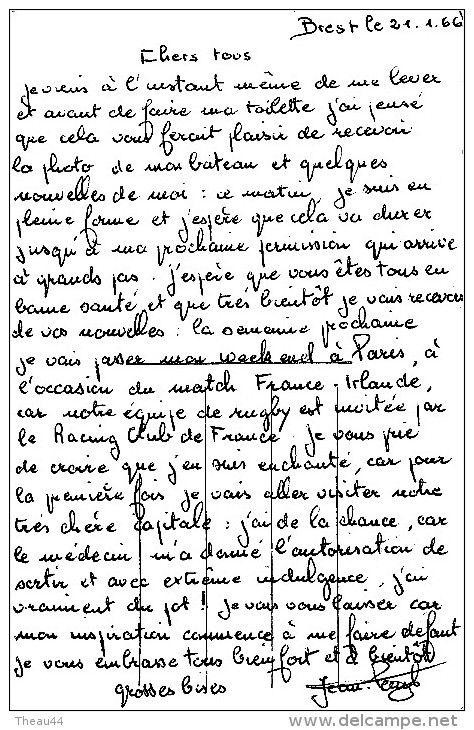 Brest le 21.1.66
Chers tous
je viens à l'instant même de me lever
et avant de faire ma toilette j'ai pensé
que cela vous ferait plaisir de recevoir
la photo de mon bateau et quelques
nouvelles de moi : ce matin, je suis en
pleine forme et j'espère que celà va durer
jusqu'à ma prochaine permission qui arrive
à grands pas. j'espère que vous êtes tous en
bonne santé, et que très bientôt je vais recevoir
de vos nouvelles. la semaine prochaine
je vais passer mon week end à Paris, à
l'occasion du match France-Irlande,
car notre équipe de rugby est invitée par
le Racing Club de France. je vous prie
de croire que j'en suis enchanté, car pour
la première fois je vais aller visiter notre
très chère Capitale : j'ai de la chance, car
le médecin m'a donné l'autorisation de
sortir et avec extrême indulgence, j'ai
vraiment du pot ! je vais vous laisser car
mon inspiration commence à me faire défaut
je vous embrasse tous bien fort et à bientôt
grosses bises
Jean
Theau44
www.delcampe.net